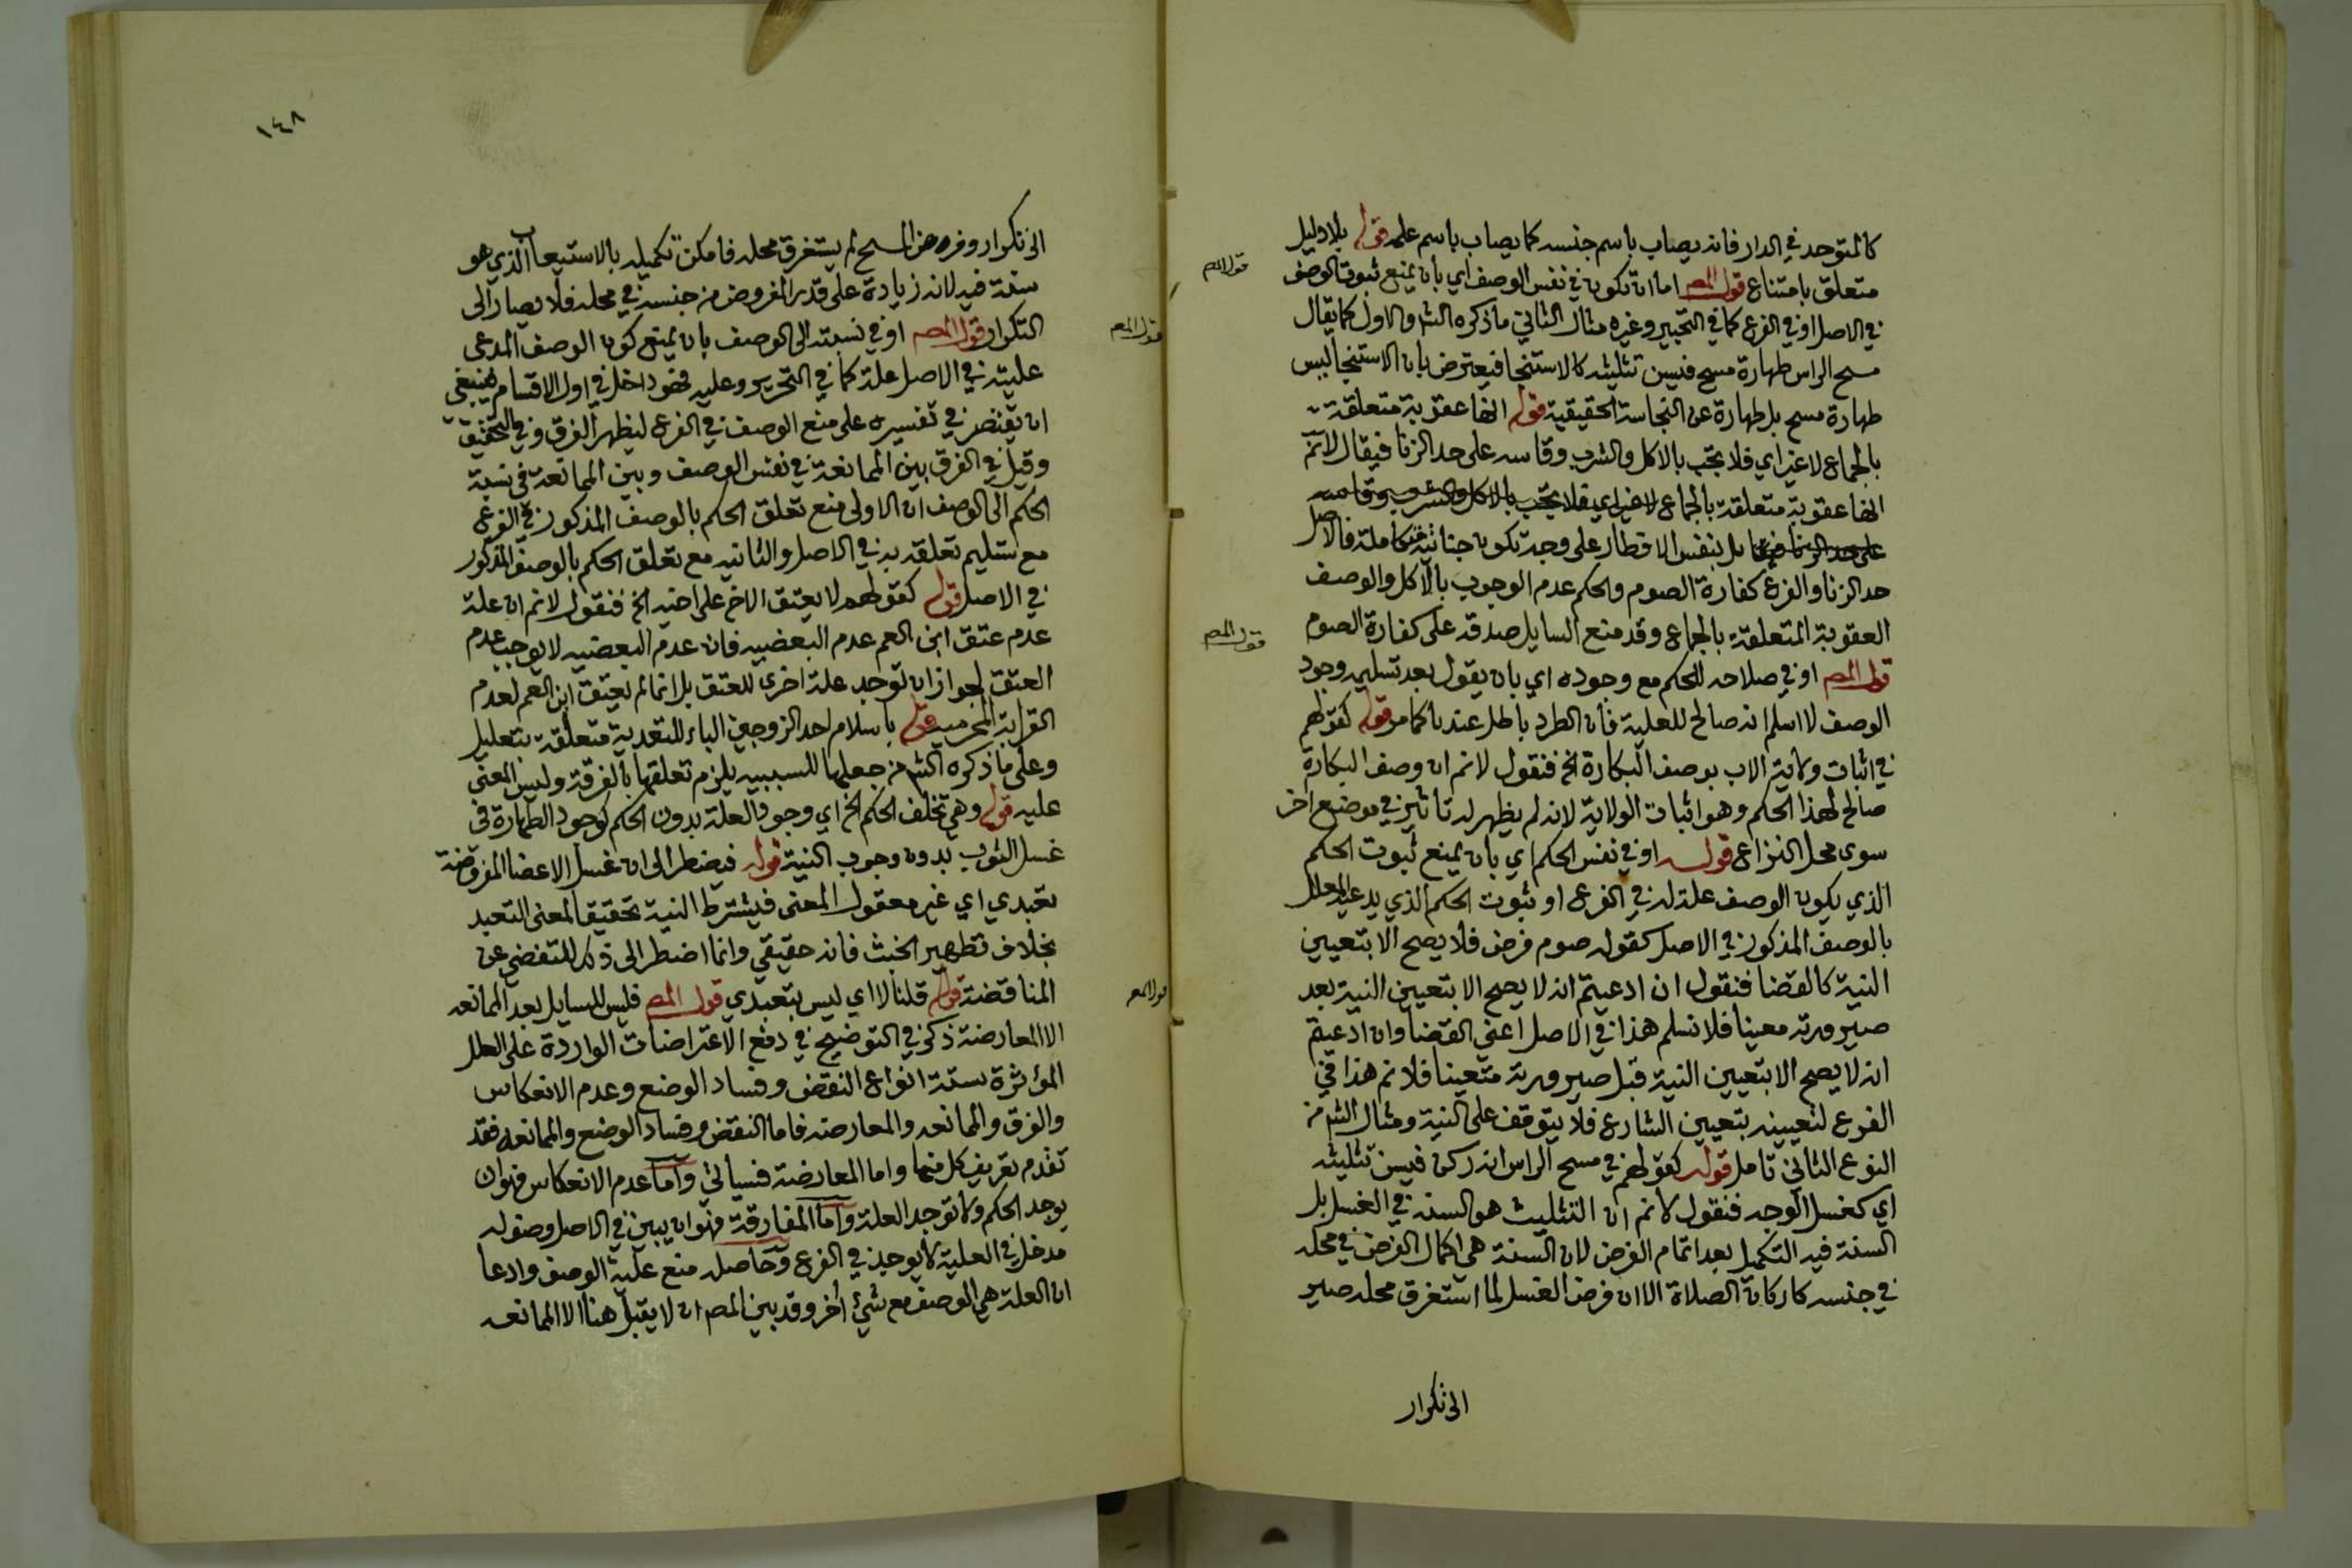 كالمتوحد في الدار فانه يصاب باسم جنسه كما يصاب باسم علمه قوله بلا دليل
متعلق بامتناع قول المص اما ان تكون في نفس الوصف اي بان يمنع ثبوت الوصف
قول المص
في الاصل او في الفرع كما في التحبير وغيره مثال الثاني ما ذكره الشم والاول كما يقال
مسح الراس طهارة مسح فيسن تثليثه كالاستنجا فيعترض بان الاستنجا ليس
طهارة مسح بل طهارة عن النجاسة الحقيقية قوله انها عقوبة متعلقة
بالجماع لا غير اي فلا يجب بالاكل والشرب وقاسه على حد الزنا فيقال لا نم
انها عقوبة متعلقة بالجماع لا غير اي فلا يجب بالاكل والشرب وقاسه
على حد الزنا فيقال بل بنفس الافطار على وجه تكون جناية متكاملة فالاصل
حد الزنا والفرع كفارة الصوم والحكم عدم الوجوب بالاكل والوصف
العقوبة المتعلقة بالجماع وقد منع السايل صدقه على كفارة الصوم
قول المص
قول المص او في صلاحه للحكم مع وجوده اي بان يقول بعد تسليم وجود
الوصف لا اسلم انه صالح للعلية فان الطرد باطل عندنا كما مر قوله كقولهم
في اثبات ولاية الاب بوصف البكارة الخ فنقول لا نم ان وصف البكارة
صالح لهذا الحكم وهو اثبات الولاية لانه لم يظهر له تاثير في موضع اخر
سوى محل النزاع قوله او في نفس الحكم اي بان يمنع ثبوت الحكم
الذي يكون الوصف علة له في الفرع او ثبوت الحكم الذي يدعيه المعلل
بالوصف المذكور في الاصل كقوله صوم فرض فلا يصح الا بتعيين
النية كالقضا فنقول ان ادعيتم انه لا يصح الا بتعيين النية بعد
صيرورته معينا فلا نسلم هذا في الاصل اعني القضا وان ادعيتم
انه لا يصح الا بتعيين النية قبل صيرورته متعينا فلا نم هذا في
الفرع لتعيينه بتعيين الشارع فلا يتوقف على النية ومثال الشم من
النوع الثاني تامل قوله كقولهم في مسح الراس انه ركن فيسن تثليثه
اي كغسل الوجه فنقول لا نم ان التثليث هو السنه في الغسل بل
السنة فيه التكميل بعد اتمام الفرض لان السنة هي اكمال الفرض في محله
في جنسه كاركان الصلاة الا ان فرض الغسل لما استغرق محله صير
الى تكرار
١٤٨
الى تكرار وفرض المسح لم يستغرق محله فامكن تكميله بالاستيعاب الذي هو
سنة فيه لانه زيادة على قدر المفروض من جنسه في محله فلا يصار الى
التكرار قول المص او في نسبته الى الوصف بان يمنع كون الوصف المدعى
قول المص
عليته في الاصل علة كما في التحرير وعليه فهو داخل في اول الاقسام فينبغي
ان يقتصر في تفسيره على منع الوصف في الفرع ليظهر الفرق وفي التحقيق
وقيل في الفرق بين الممانعة في نفس الوصف وبين الممانعة في نسبة
الحكم الى الوصف ان الاولى منع تعلق الحكم بالوصف المذكور في الفرع
مع تسليم تعلقه به في الاصل والثانيه مع تعلق الحكم بالوصف المذكور
في الاصل قوله كقولهم لا يعتق الاخ على اخيه الخ فنقول لا نم ان علة
عدم عتق ابن العم عدم البعضيه فان عدم البعضيه لا يوجب عدم
العتق لجواز ان توجد علة اخرى للعتق بل انما لم يعتق ابن العم لعدم
القرابة المحرمية قوله باسلام احد الزوجين الباء للتعدية متعلقة بتعليل
وعلى ما ذكره الشم من جعلها للسببيه يلزم تعلقها بالفرقة وليس المعنى
عليه قوله وهي تخلف الحكم الخ اي وجود العلة بدون الحكم لوجود الطهارة في
غسل الثوب بدون وجوب النية قوله فيضطر الى ان غسل الاعضا المفروضة
تعبدي اي غير معقول المعنى فيشترط النية تحقيقا لمعنى التعبد
بخلاف تطهير الخبث فانه حقيقي وانما اضطر الى ذلك للتفصي عن
المناقضة قوله قلنا لا اي ليس بتعبدي قول المص فليس للسايل بعد الممانعه
قول المص
الا المعارضة ذكر في التوضيح في دفع الاعتراضات الواردة على العلل
المؤثرة ستة انواع النقض وفساد الوضع وعدم الانعكاس
والفرق والممانعه والمعارضه فاما النقض وفساد الوضع والممانعه فقد
تقدم تعريف كل منها واما المعارضة فسياتي واما عدم الانعكاس فهو ان
يوجد الحكم ولا توجد العلة واما المفارقة فهو ان يبين في الاصل وصفا له
مدخل في العلية لا يوجد في الفرع وحاصله منع علية الوصف وادعا
ان العلة هي الوصف مع شيء اخر وقد بين المص ان لا يقبل هنا الا الممانعه